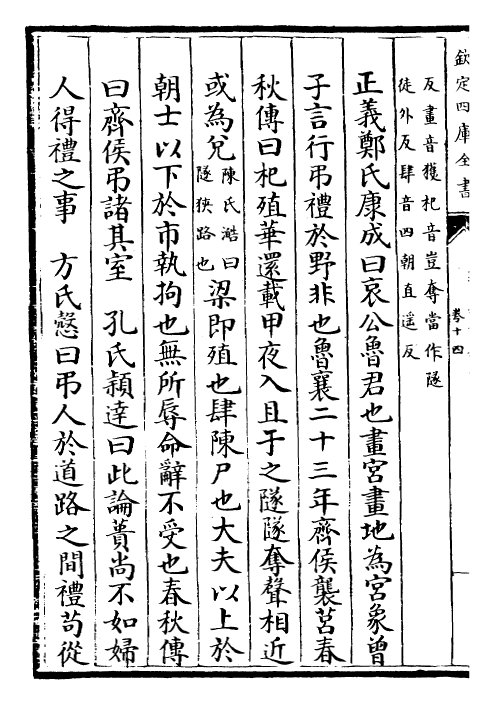 欽定四庫全書
卷十四
反畫音獲杞音豈奪當作隧
徒外反肆音四朝直遥反
正義鄭氏康成曰哀公魯君也畫宮畫地為宮象曾
子言行弔禮於野非也魯襄二十三年齊侯襲莒春
秋傳曰杞殖華還載甲夜入且于之隧隧奪聲相近
或為兌陳氏澔曰隧狹路也梁即殖也肆陳尸也大夫以上於
朝士以下於市執拘也無所辱命辭不受也春秋傳
曰齊侯弔諸其室　孔氏穎達曰此論蕢尚不如婦
人得禮之事　方氏慤曰弔人於道路之間禮苟從